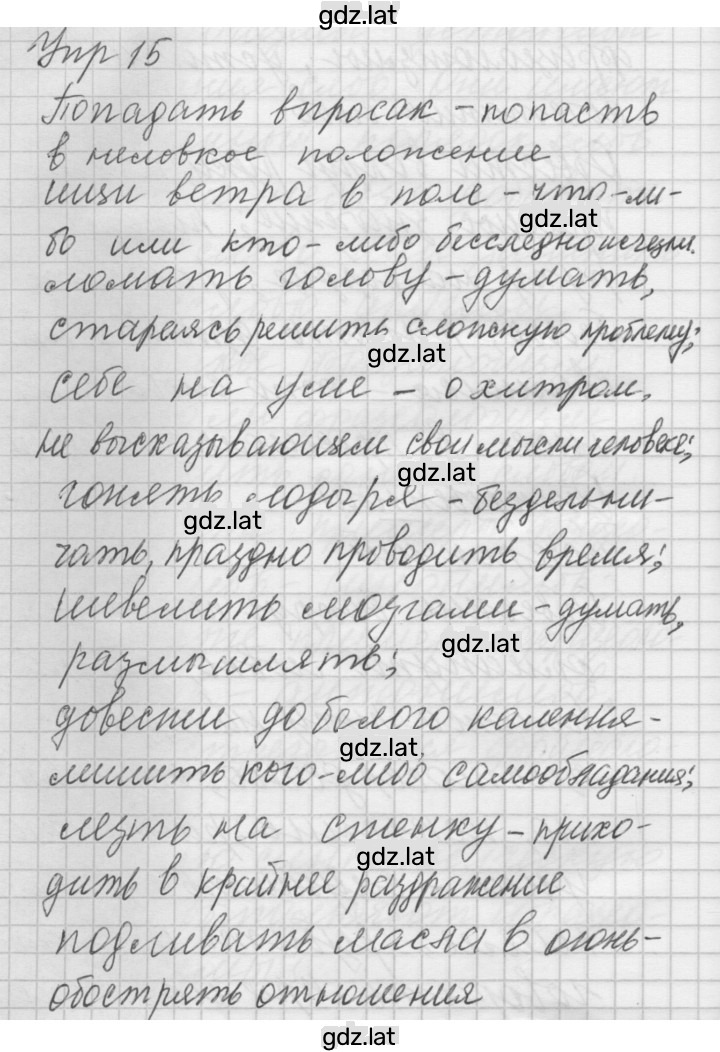 gdz.lat
Упр 15
Попадать впросак - попасть
в неловкое положение
ищи ветра в поле - что-ли-
gdz.lat
бо или кто-либо бесследно исчезли.
ломать голову - думать,
стараясь решить сложную проблему;
gdz.lat
себе на уме - о хитром,
не высказывающем свои мысли человеке;
gdz.lat
гонять лодыря - бездельни-
gdz.lat
чать, праздно проводить время;
шевелить мозгами - думать,
gdz.lat
размышлять;
довести до белого каления -
gdz.lat
лишить кого-либо самообладания;
лезть на стенку - прихо-
gdz.lat
дить в крайнее раздражение
подливать масла в огонь -
обострять отношения
gdz.lat